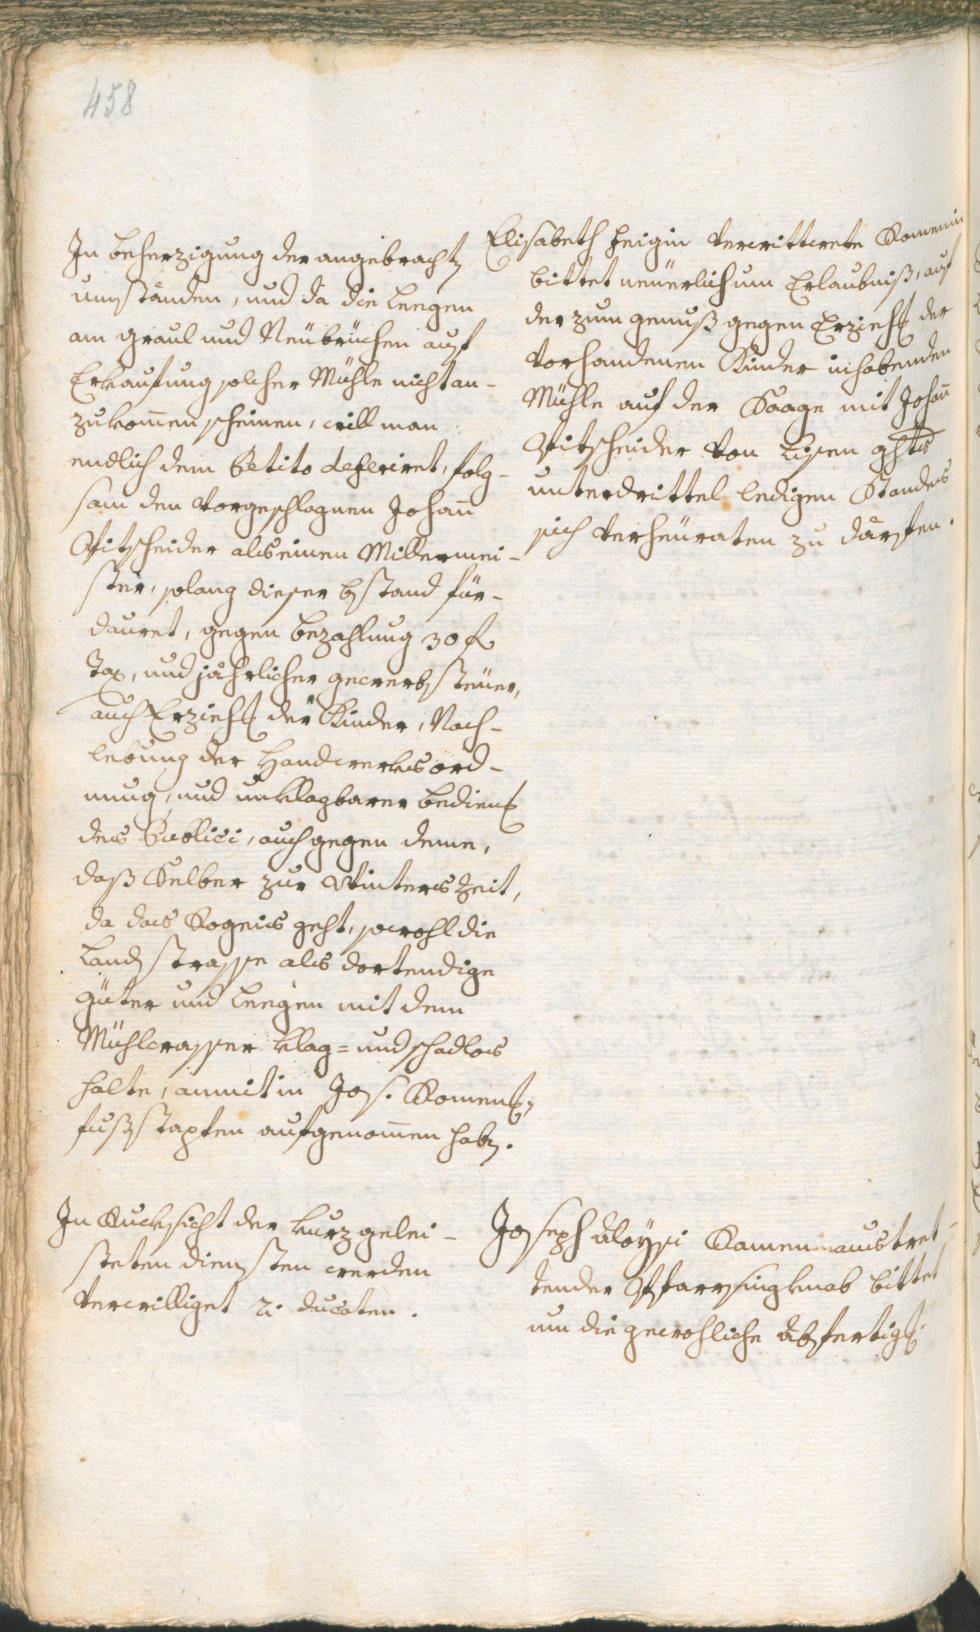 458
In beherzigung der angebracht
umständen, und da die Leegen
am graul und Neübrüchen auf
Erkaufung solcher Mühle nicht an-
zukom̄en scheinen, will man
endlich dem Petito deferiret, folg-
sam den vorgeschlagnen Johan̄
Pitscheider als einen Millermei-
ster, solang dieser bstand für-
dauret, gegen bezahlung 30 f
Tax, und jährlicher gewerbsteüer,
auch Erziehg der Kinder, Nach-
lebung der Handwerksord-
nung, und unklagbarer bedieng
des Publici, auch gegen deme,
daß Selber zur Winterszeit,
da das Rogeis geht, sowohl die
Landstrasse als dortendige
güter und Leegen mit dem
Mühlwasser klag- und schadlos
halte, anmit in Jos. Ramens
fußstapfen aufgenom̄en hab.
Elisabeth heigin verwittwete Ramenin
bittet neüerlich um Erlaubniß, auf
der zum genuß gegen Erziehg der
vorhandenen Kinder inhabenden
Mühle auf der Raage mit Johan̄
Pitscheider von Lisen ghts
unterdrittel ledigen Standes
sich verheüraten zu därfen.
In Rucksicht der kurz gelei-
steten diensten werden
verwilliget 2. ducaten.
Joseph aloysi Ramen austret-
tender Pfarrsingknab bittet
um die gewohliche abfertigg.